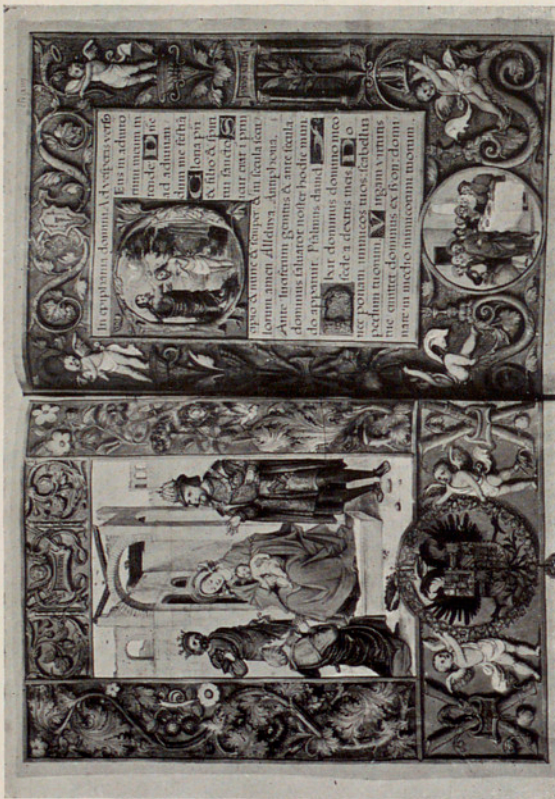 In epiphania domini. Ad vesperas verso
Eus in adiuto
rium meum in
tende. D ne
ad adiuuan
dum me festia
G loria pri
& filio & spiri
tui sancto. S
icut erat i prin
cipio & nunc & semper & in secula secu
lorum amen. Alleluya. Antiphona.
Ante luciferum genitus & ante secula
dominus saluator noster hodie mun
do apparuit. Psalmus dauid.
Ixit dominus domino meo
sede a dextris meis. D o
nec ponam inimicos tuos: scabellum
pedum tuorum. V irgam virtutis
tue emittet dominus ex syon: domi
nare in medio inimicorum tuorum.